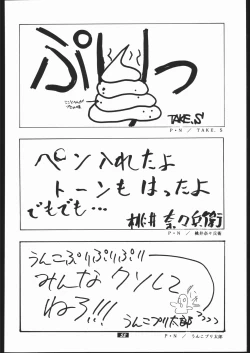 ぷりっ
TAKE.S
P・N / TAKE. S
ペン入れたよ
トーンもはったよ
でもでも…
桃井奈々兵衛
P・N / 桃井奈々兵衛
うんこぷりぷりぷり
みんなクソして
ねろ!!!
うんこプリ太郎
P・N / うんこプリ太郎